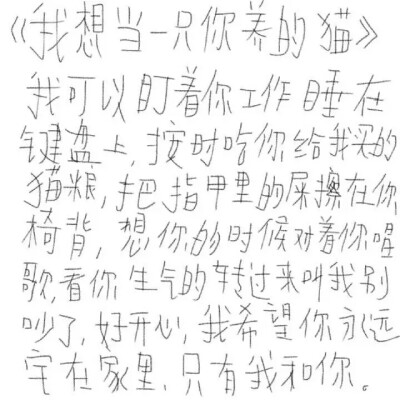 《我想当一只你养的猫》
我可以盯着你工作睡在
键盘上,按时吃你给我买的
猫粮,把指甲里的屎擦在你
椅背,想你的时候对着你唱
歌,看你生气的转过来叫我别
吵了,好开心,我希望你永远
宅在家里,只有我和你。